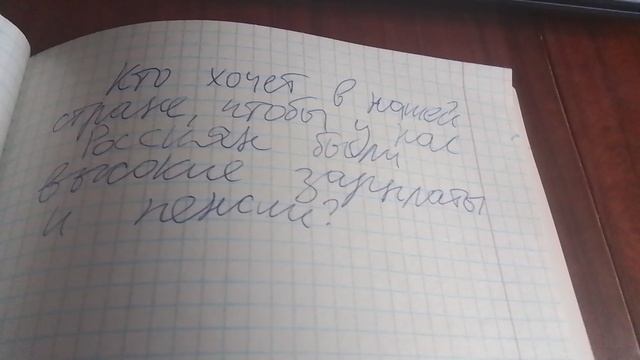 Кто хочет в нашей
стране, чтобы у нас
Россиян были
высокие зарплаты
и пенсии?